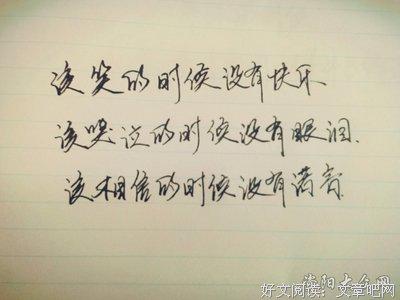 该笑的时候没有快乐
该哭泣的时候没有眼泪.
该相信的时候没有诺言.
好文阅读：文章吧网